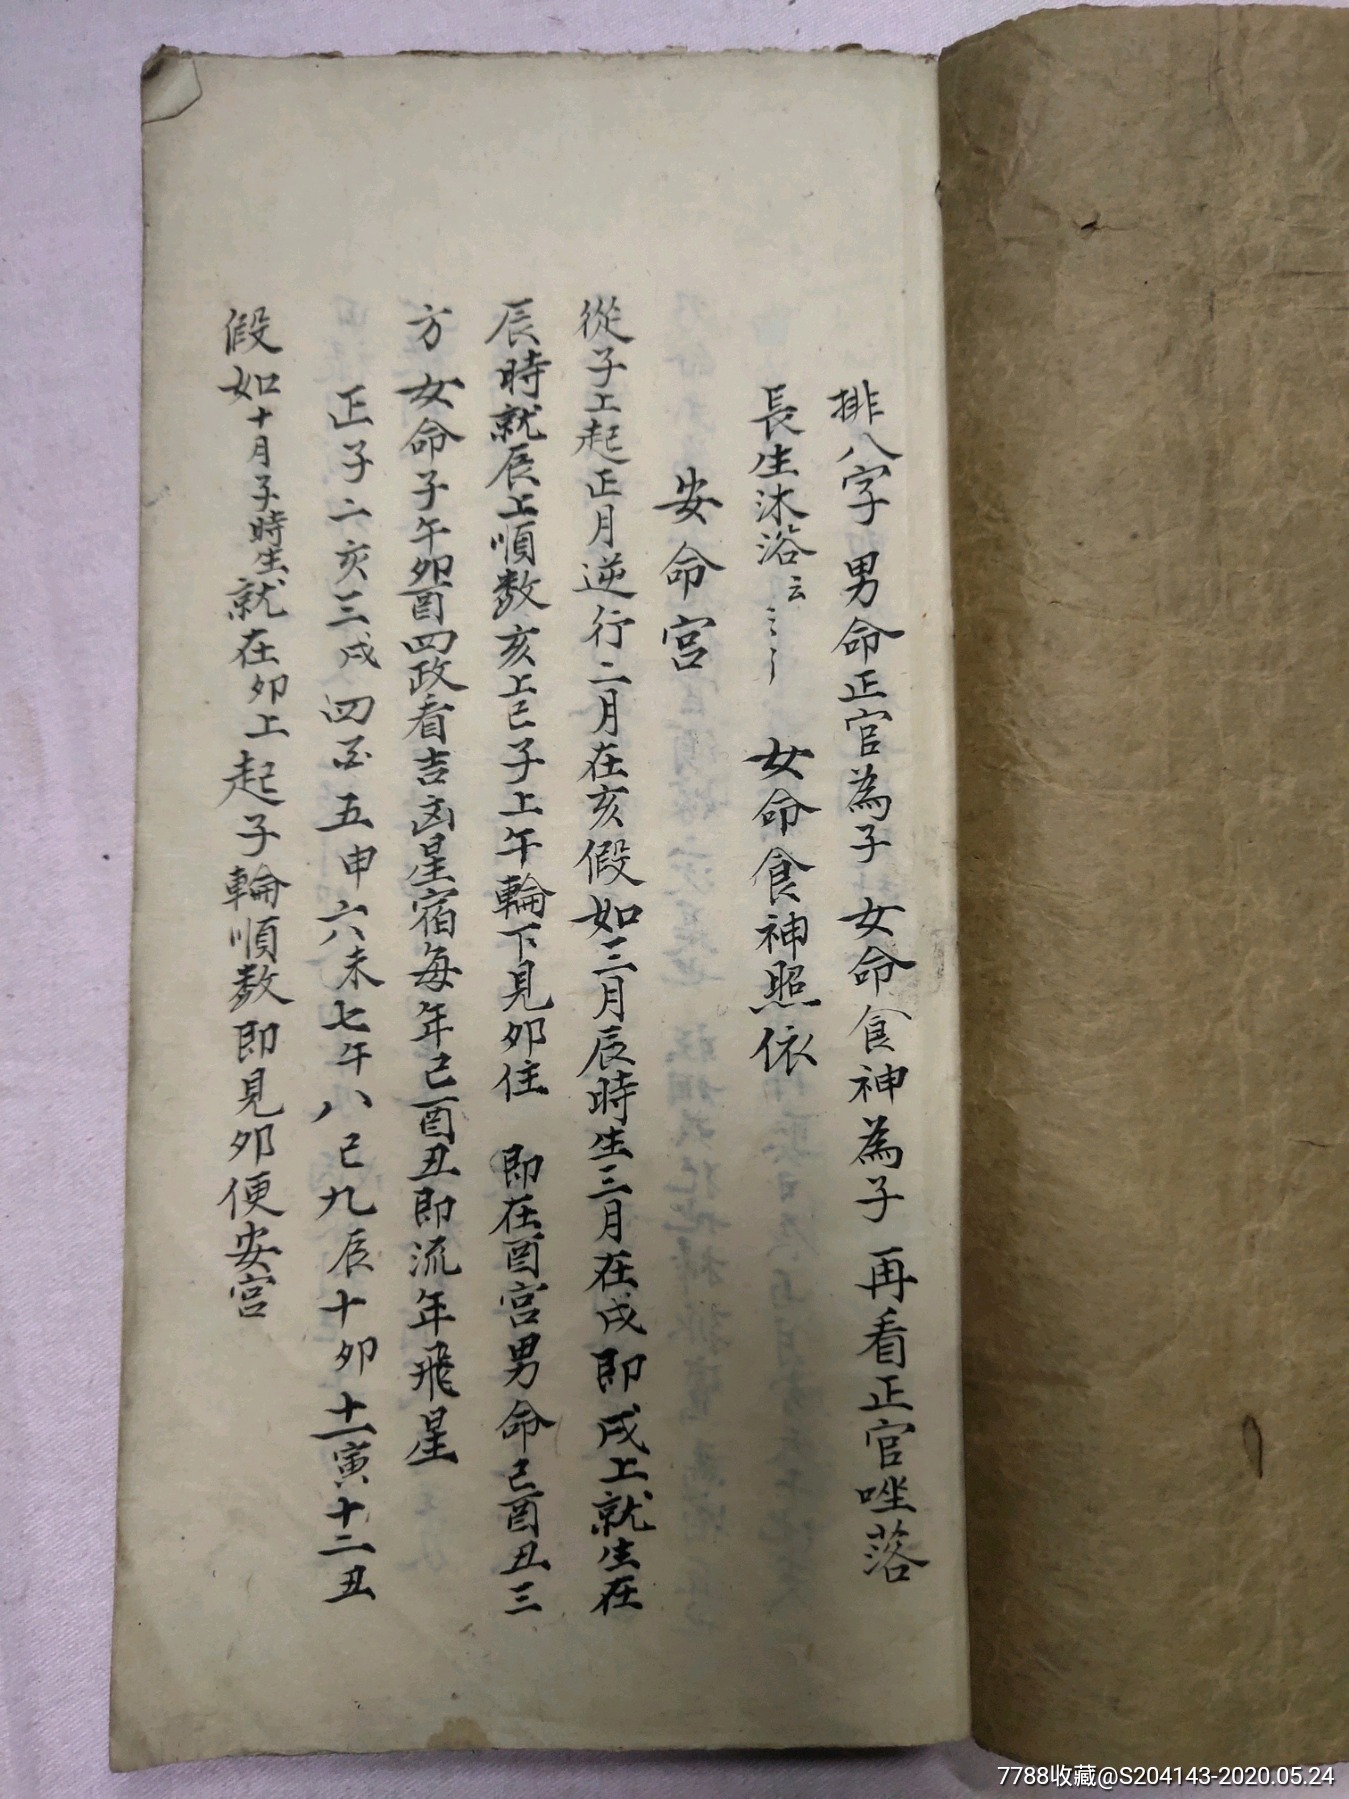 排八字 男命正官為子女命食神為子 再看正官唑落
長生沐浴云 女命食神照依
安命宮
從子上起正月逆行二月在亥假如三月辰時生三月在戌即戌上就生在
辰時就辰上順数亥上巳子上午輪下見卯住 即在酉宮男命巳酉丑三
方女命子午卯酉四政看吉凶星宿每年巳酉丑即流年飛星
正子二亥三戌四酉五申六未七午八巳九辰十卯十一寅十二丑
假如十月子時生就在卯上起子輪順数即見卯便安宮
7788收藏@S204143-2020.05.24